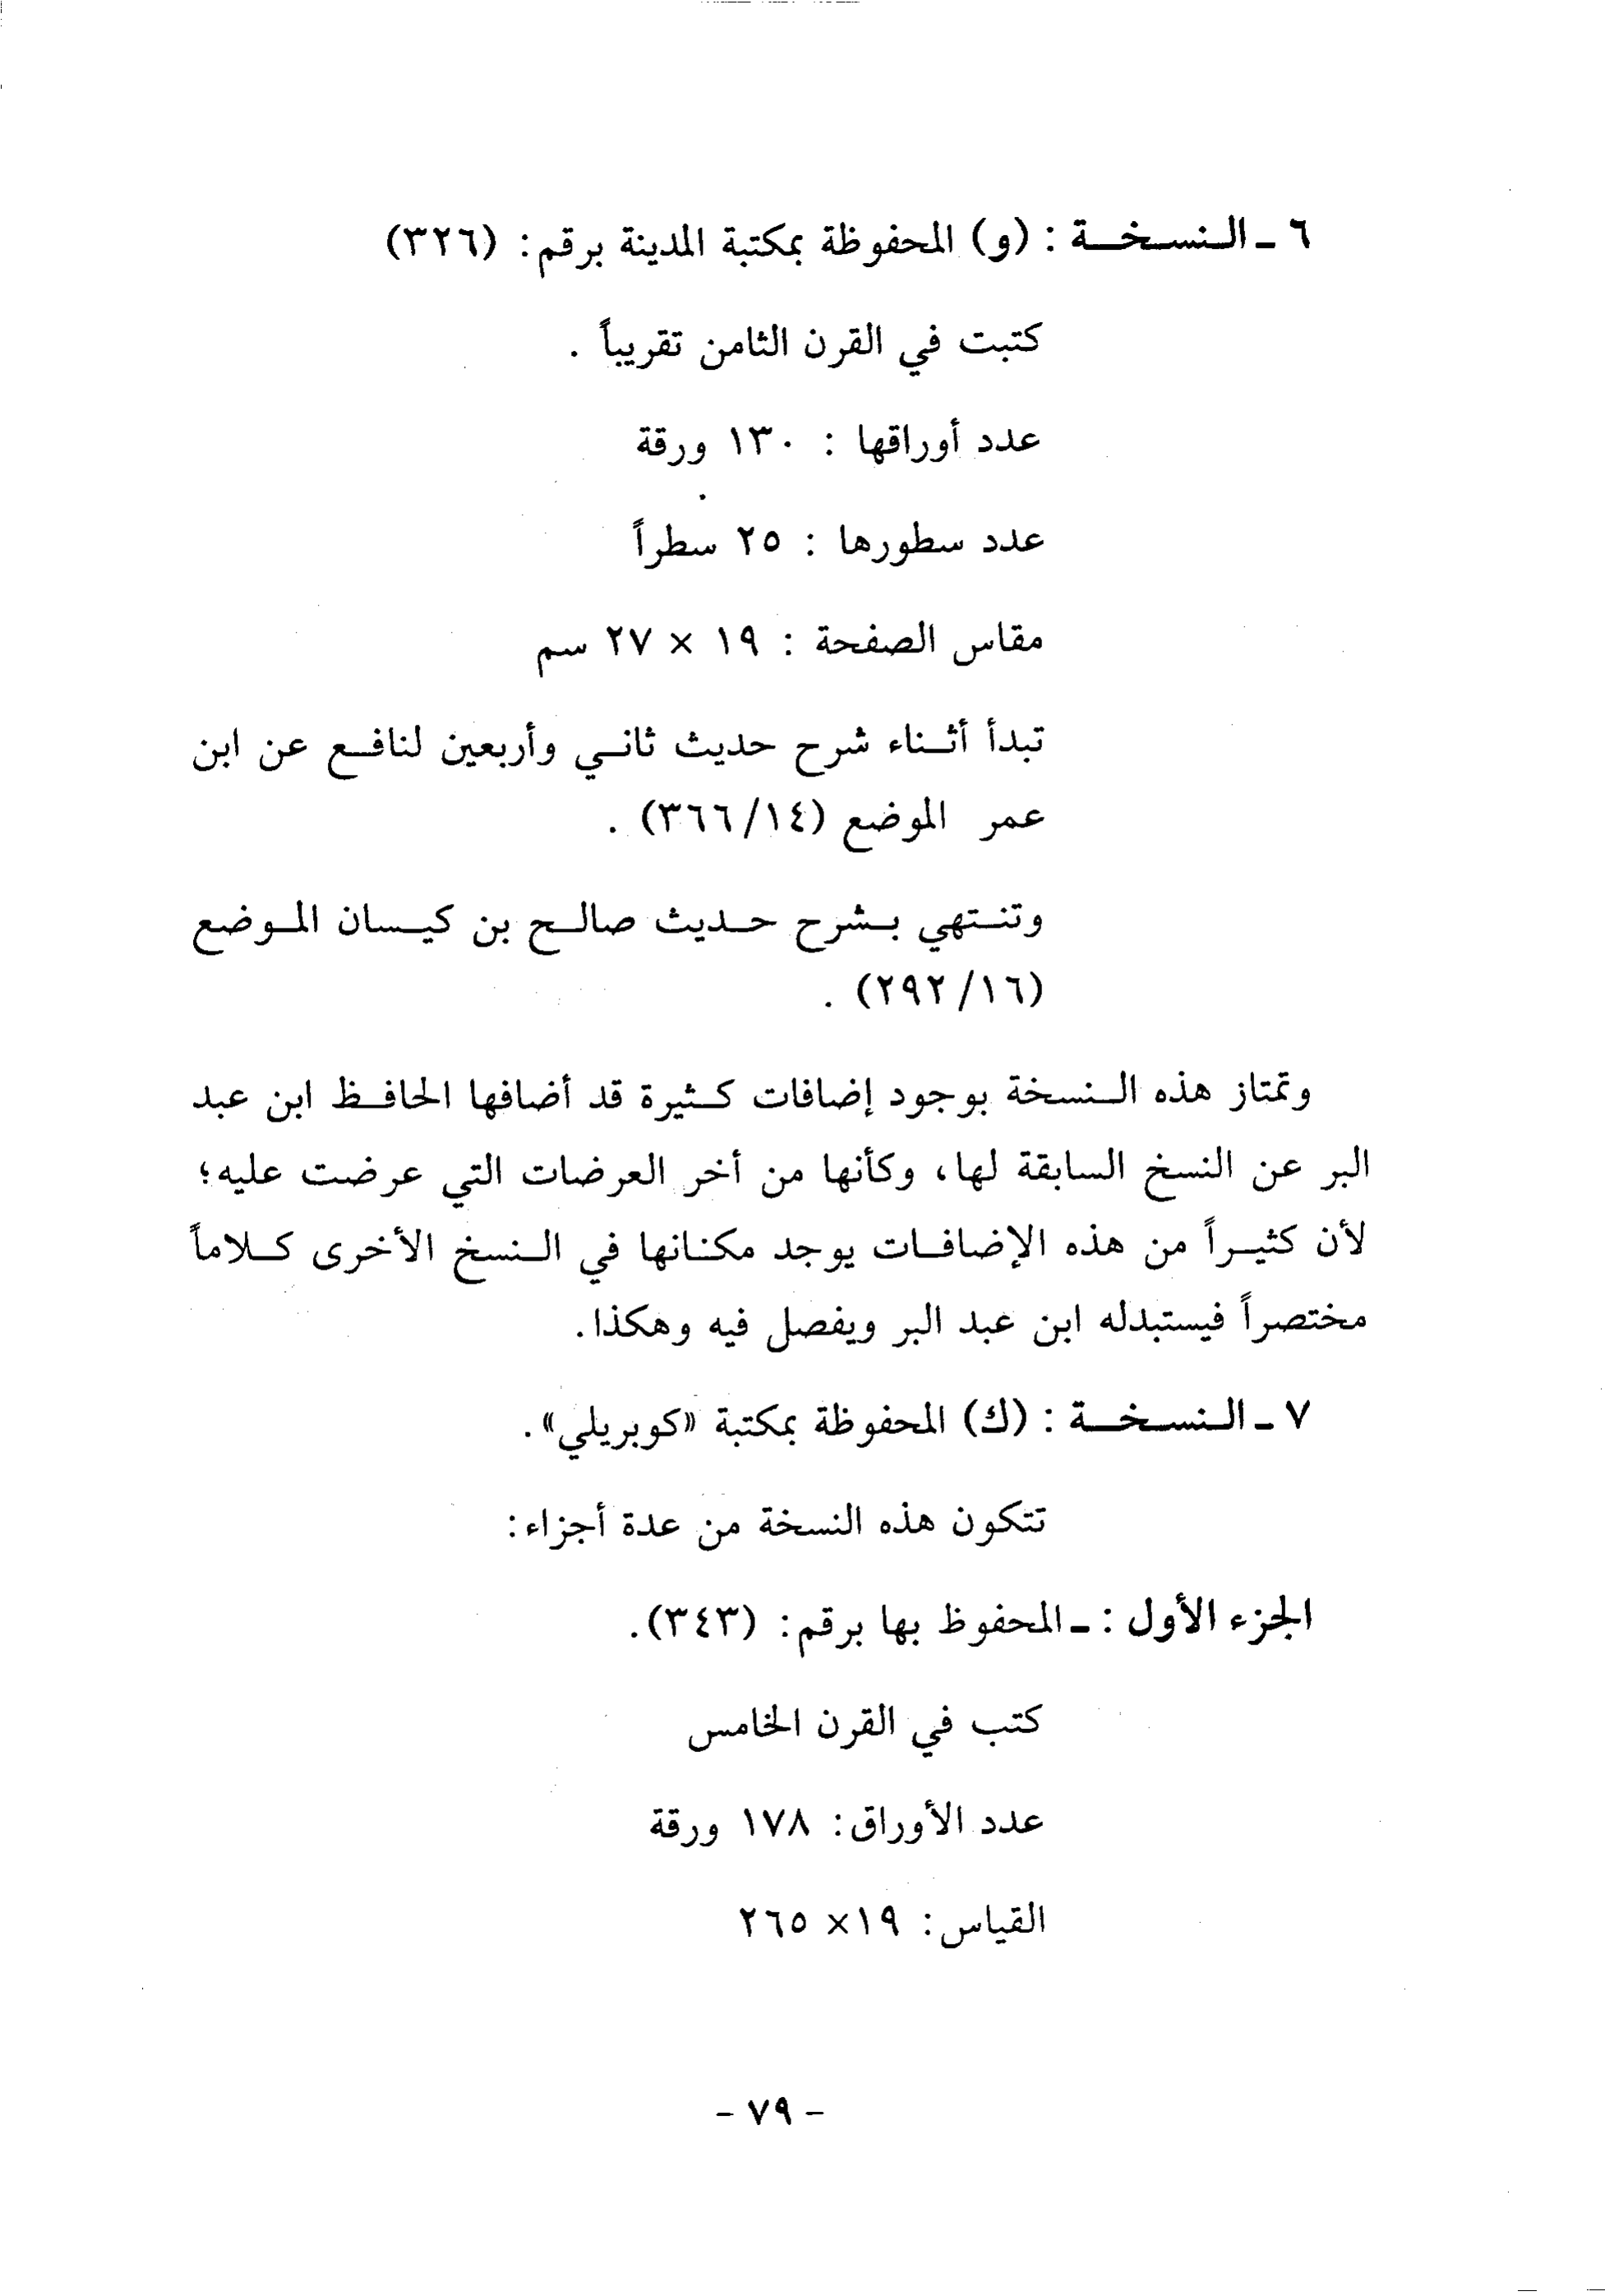 ٦ - النسخة : (و) المحفوظة بمكتبة المدينة برقم: (٣٢٦)
كتبت في القرن الثامن تقريباً .
عدد أوراقها : ١٣٠ ورقة
عدد سطورها : ٢٥ سطراً
مقاس الصفحة : ١٩ × ٢٧ سم
تبدأ أثناء شرح حديث ثاني وأربعين لنافع عن ابن
عمر الموضع (٣٦٦/١٤) .
وتنتهي بشرح حديث صالح بن كيسان الموضع
(٢٩٢/١٦) .
وتمتاز هذه النسخة بوجود إضافات كثيرة قد أضافها الحافظ ابن عبد
البر عن النسخ السابقة لها، وكأنها من أخر العرضات التي عرضت عليه؛
لأن كثيراً من هذه الإضافات يوجد مكنانها في النسخ الأخرى كلاماً
مختصراً فيستبدله ابن عبد البر ويفصل فيه وهكذا.
٧ - النسخة : (ك) المحفوظة بمكتبة «كوبريلي».
تتكون هذه النسخة من عدة أجزاء:
الجزء الأول : - المحفوظ بها برقم: (٣٤٣).
كتب في القرن الخامس
عدد الأوراق: ١٧٨ ورقة
القياس: ١٩× ٢٦٥
- ٧٩ -